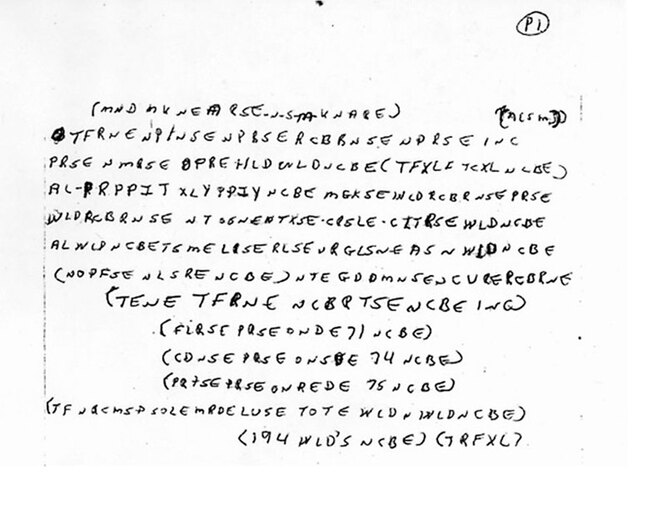 P1
(MND MKNEARSE-N-S-TA-KNARE) (ACSM)
TFRNENPINSENPBSERCBBNSENPRSEINC
PRSENMRSEOPREHLDWLDNCBE(TFXLF TCXLNCBE)
AL-PRPPIT XLYPPIYNCBE MGKSEWLDRCBRNSEPRSE
WLDRCBRNSE NTOSNENTXSE-CRSLE-CITRSEWLDNCBE
ALWLPNCBETSMELRSERLSEURGLSNEASNWLDNCBE
(NOPFSENLSRENCBE)NTEGDDMNSENCURERCBRNE
(TENETFRNENCBRTSENCBEING)
(FLRSEPRSEONDE71NCBE)
(CDNSEPRSEONSDE74NCBE)
(PRTSEPRSEONREDE75NCBE)
(TFNQCMSPSOLEMRDELUSETOTEWLDNWLDNCBE)
(194WLD'SNCBE)(TRFXL)